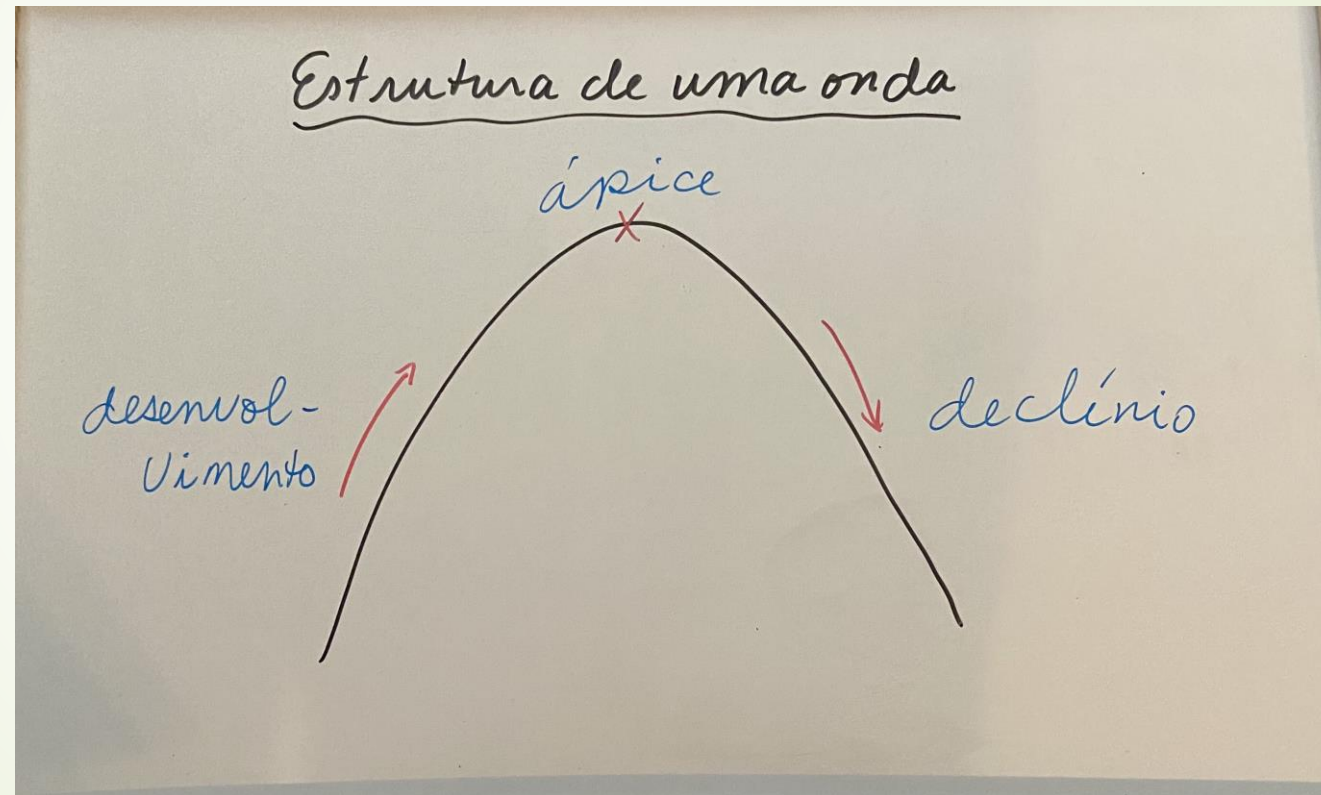 Estrutura de uma onda
ápice
desenvol-
vimento
declínio